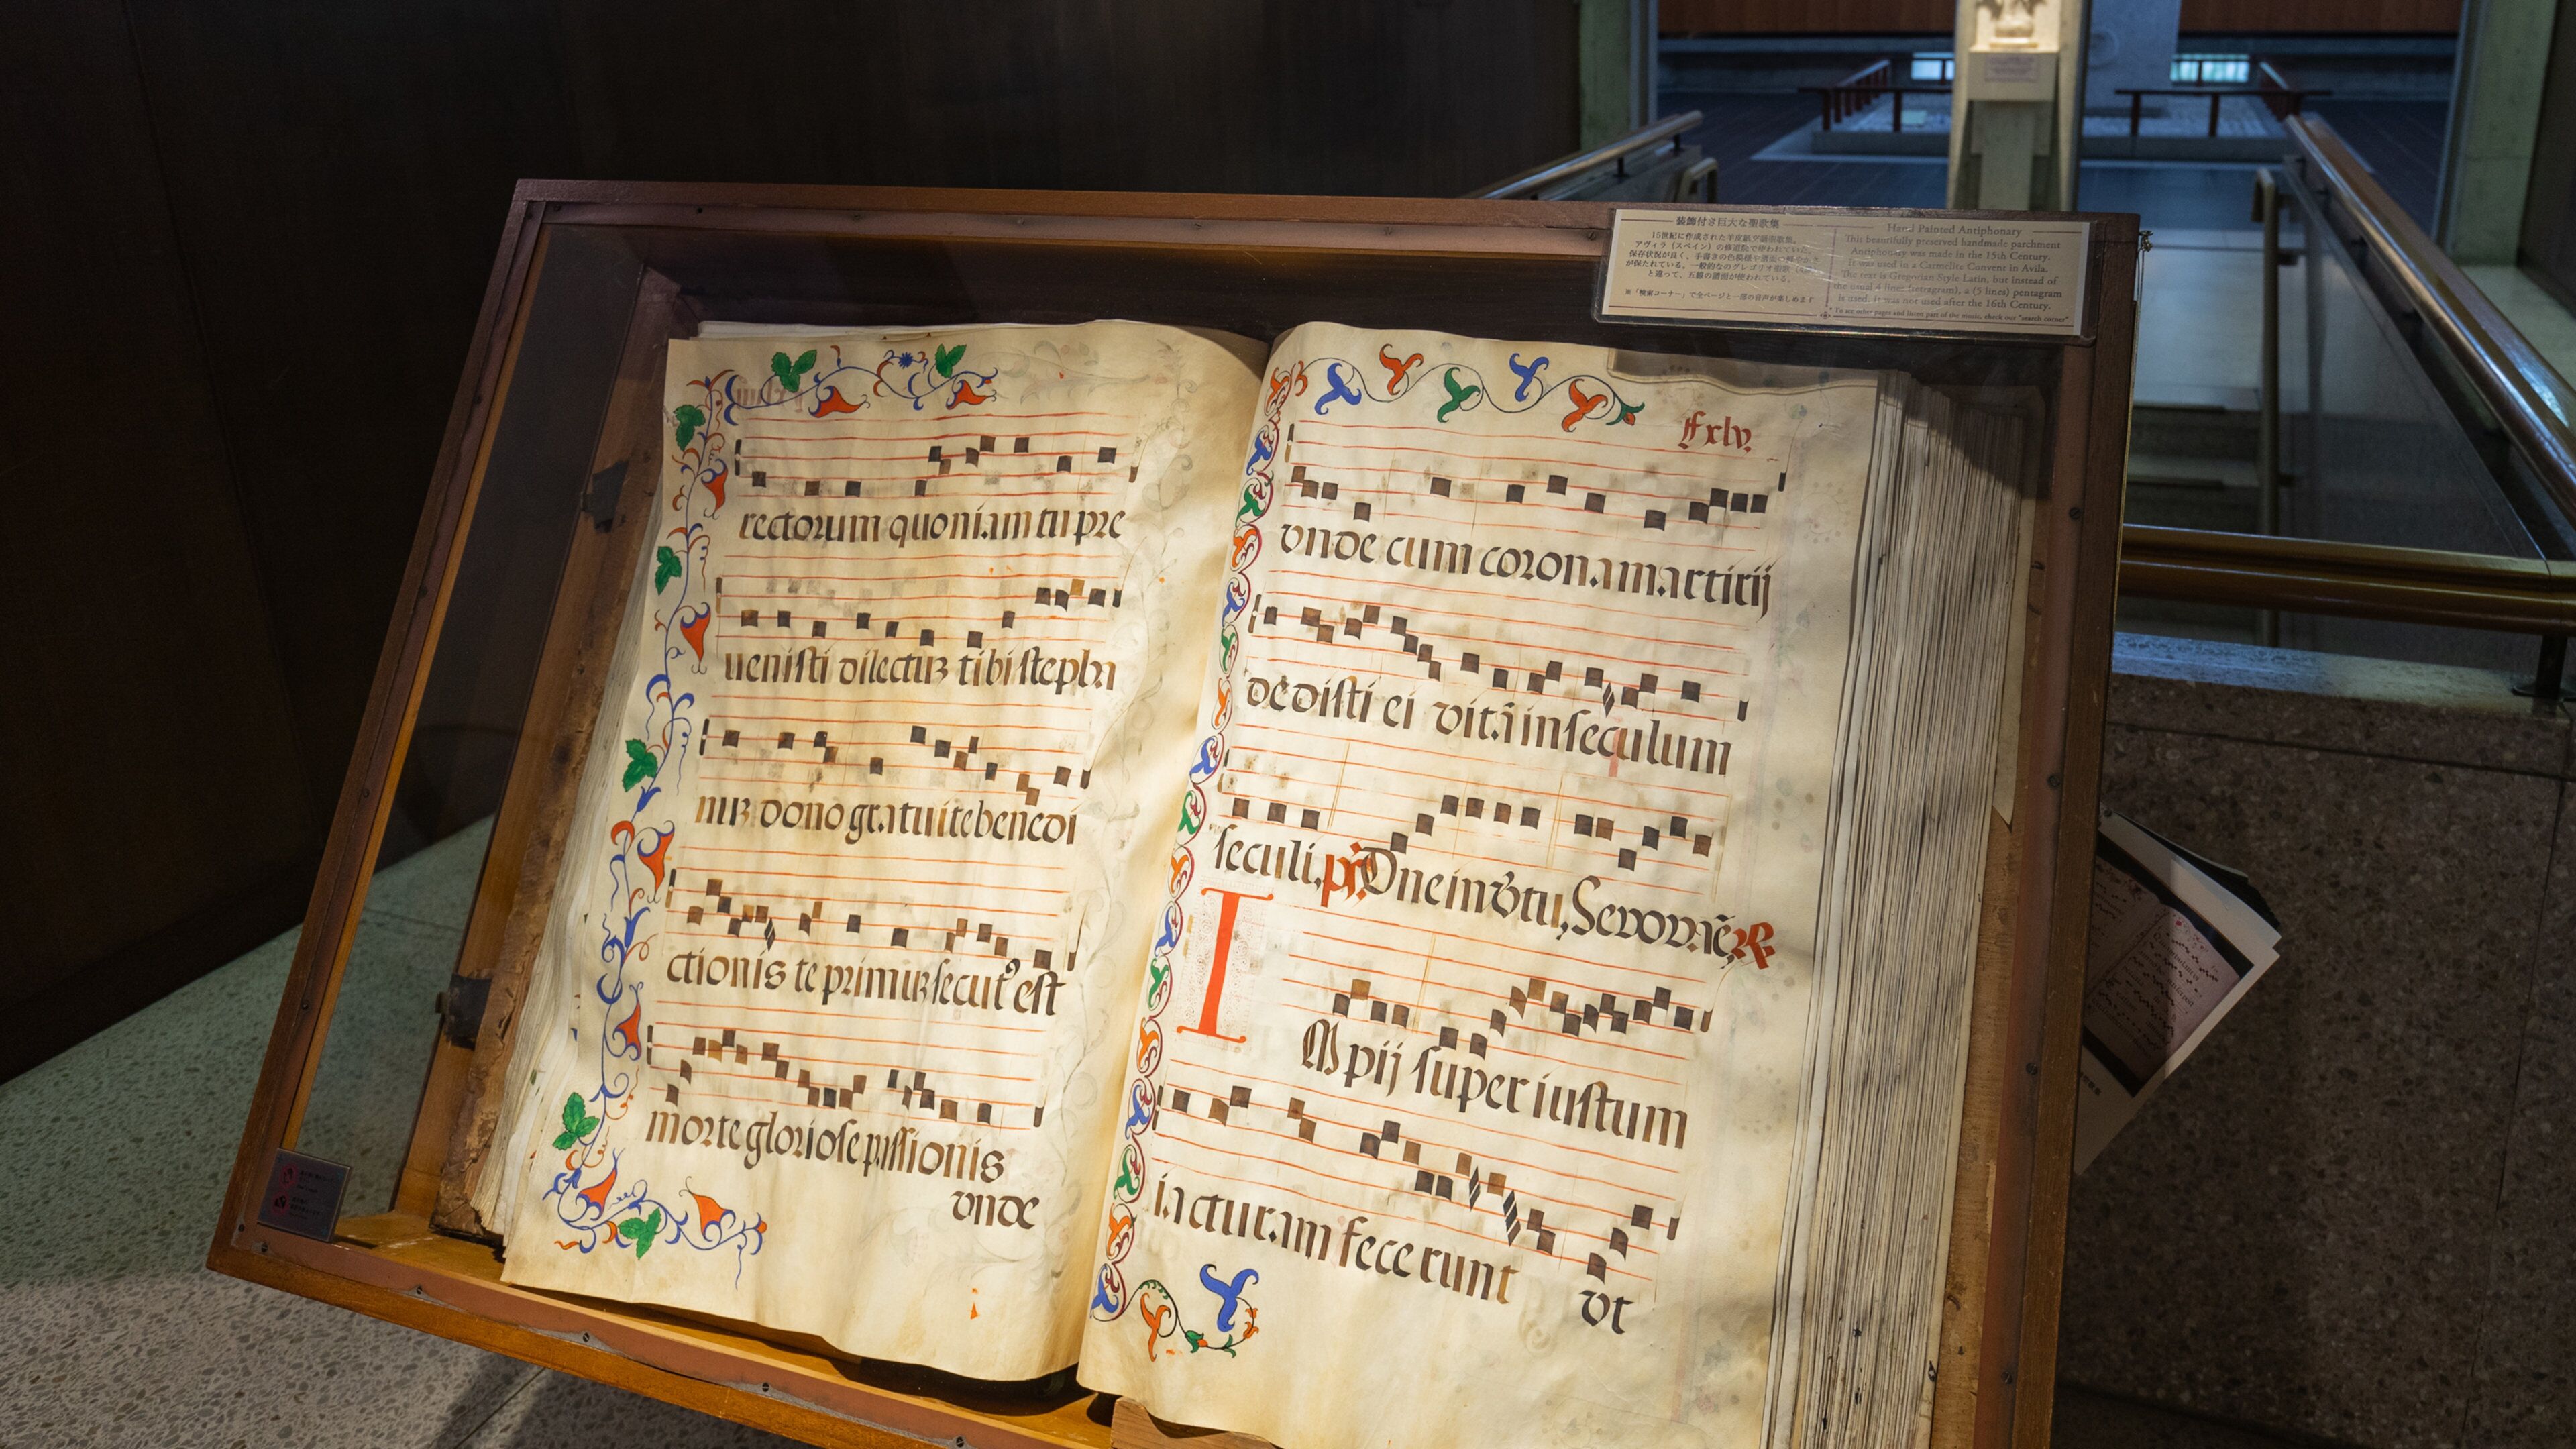 装飾付き巨大な聖歌集
15世紀に作成された羊皮紙
アヴィラ（スペイン）の修道院で使われていた。
保存状況が良く、手書きの色模様や
が保たれている。一般的なグレゴリオ聖歌
と違って、五線の譜面が使われている。
※「検索コーナー」で全ページと一部の音声が楽しめます
Hand Painted Antiphonary
This beautifully preserved handmade parchment
Antiphonary was made in the 15th Century.
It was used in a Carmelite Convent in Avila.
The text is Gregorian Style Latin, but instead of
the usual 4 lines (tetragram), a (5 lines) pentagram
is used. It was not used after the 16th Century.
To see other pages and listen part of the music, check our "search corner"
rectorum quoniam tu pre
uenisti dilectus tibi stepha
nus dono gratuite benedi
ctionis te primus secut⁹ est
morte gloriose passionis
vnde
fxlv.
vnde cum corona martirij
dedisti ei vitā in seculum
seculi. Dne in
I
Mpij super iustum
iacturam fecerunt
vt